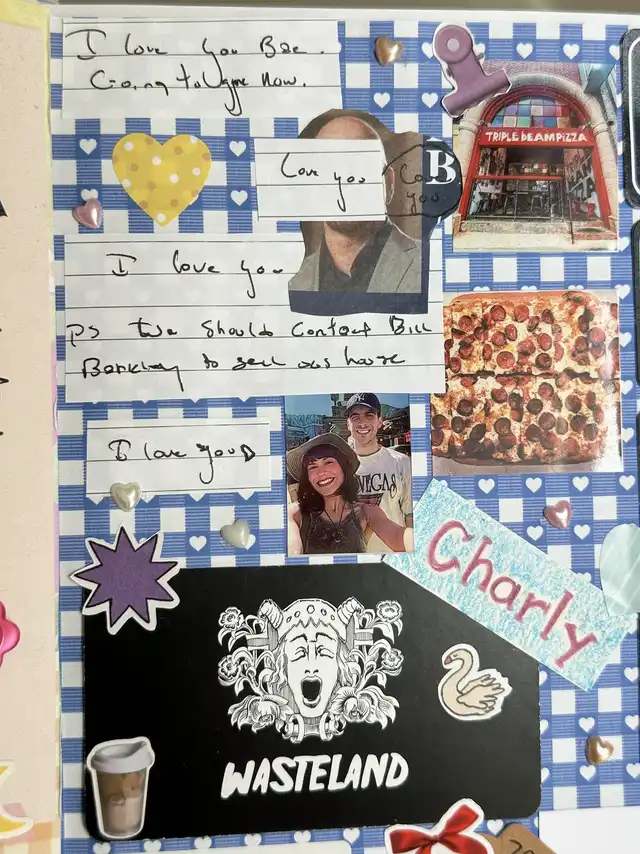 I love you Bee.
Going to Vgne now.
Love you
Love
you
B
TRIPLE BEAM PIZZA
I love you
ps we should contact Bill
Berkley to sell our house
I love you
NY
VEGAS
Charly
WASTELAND
20